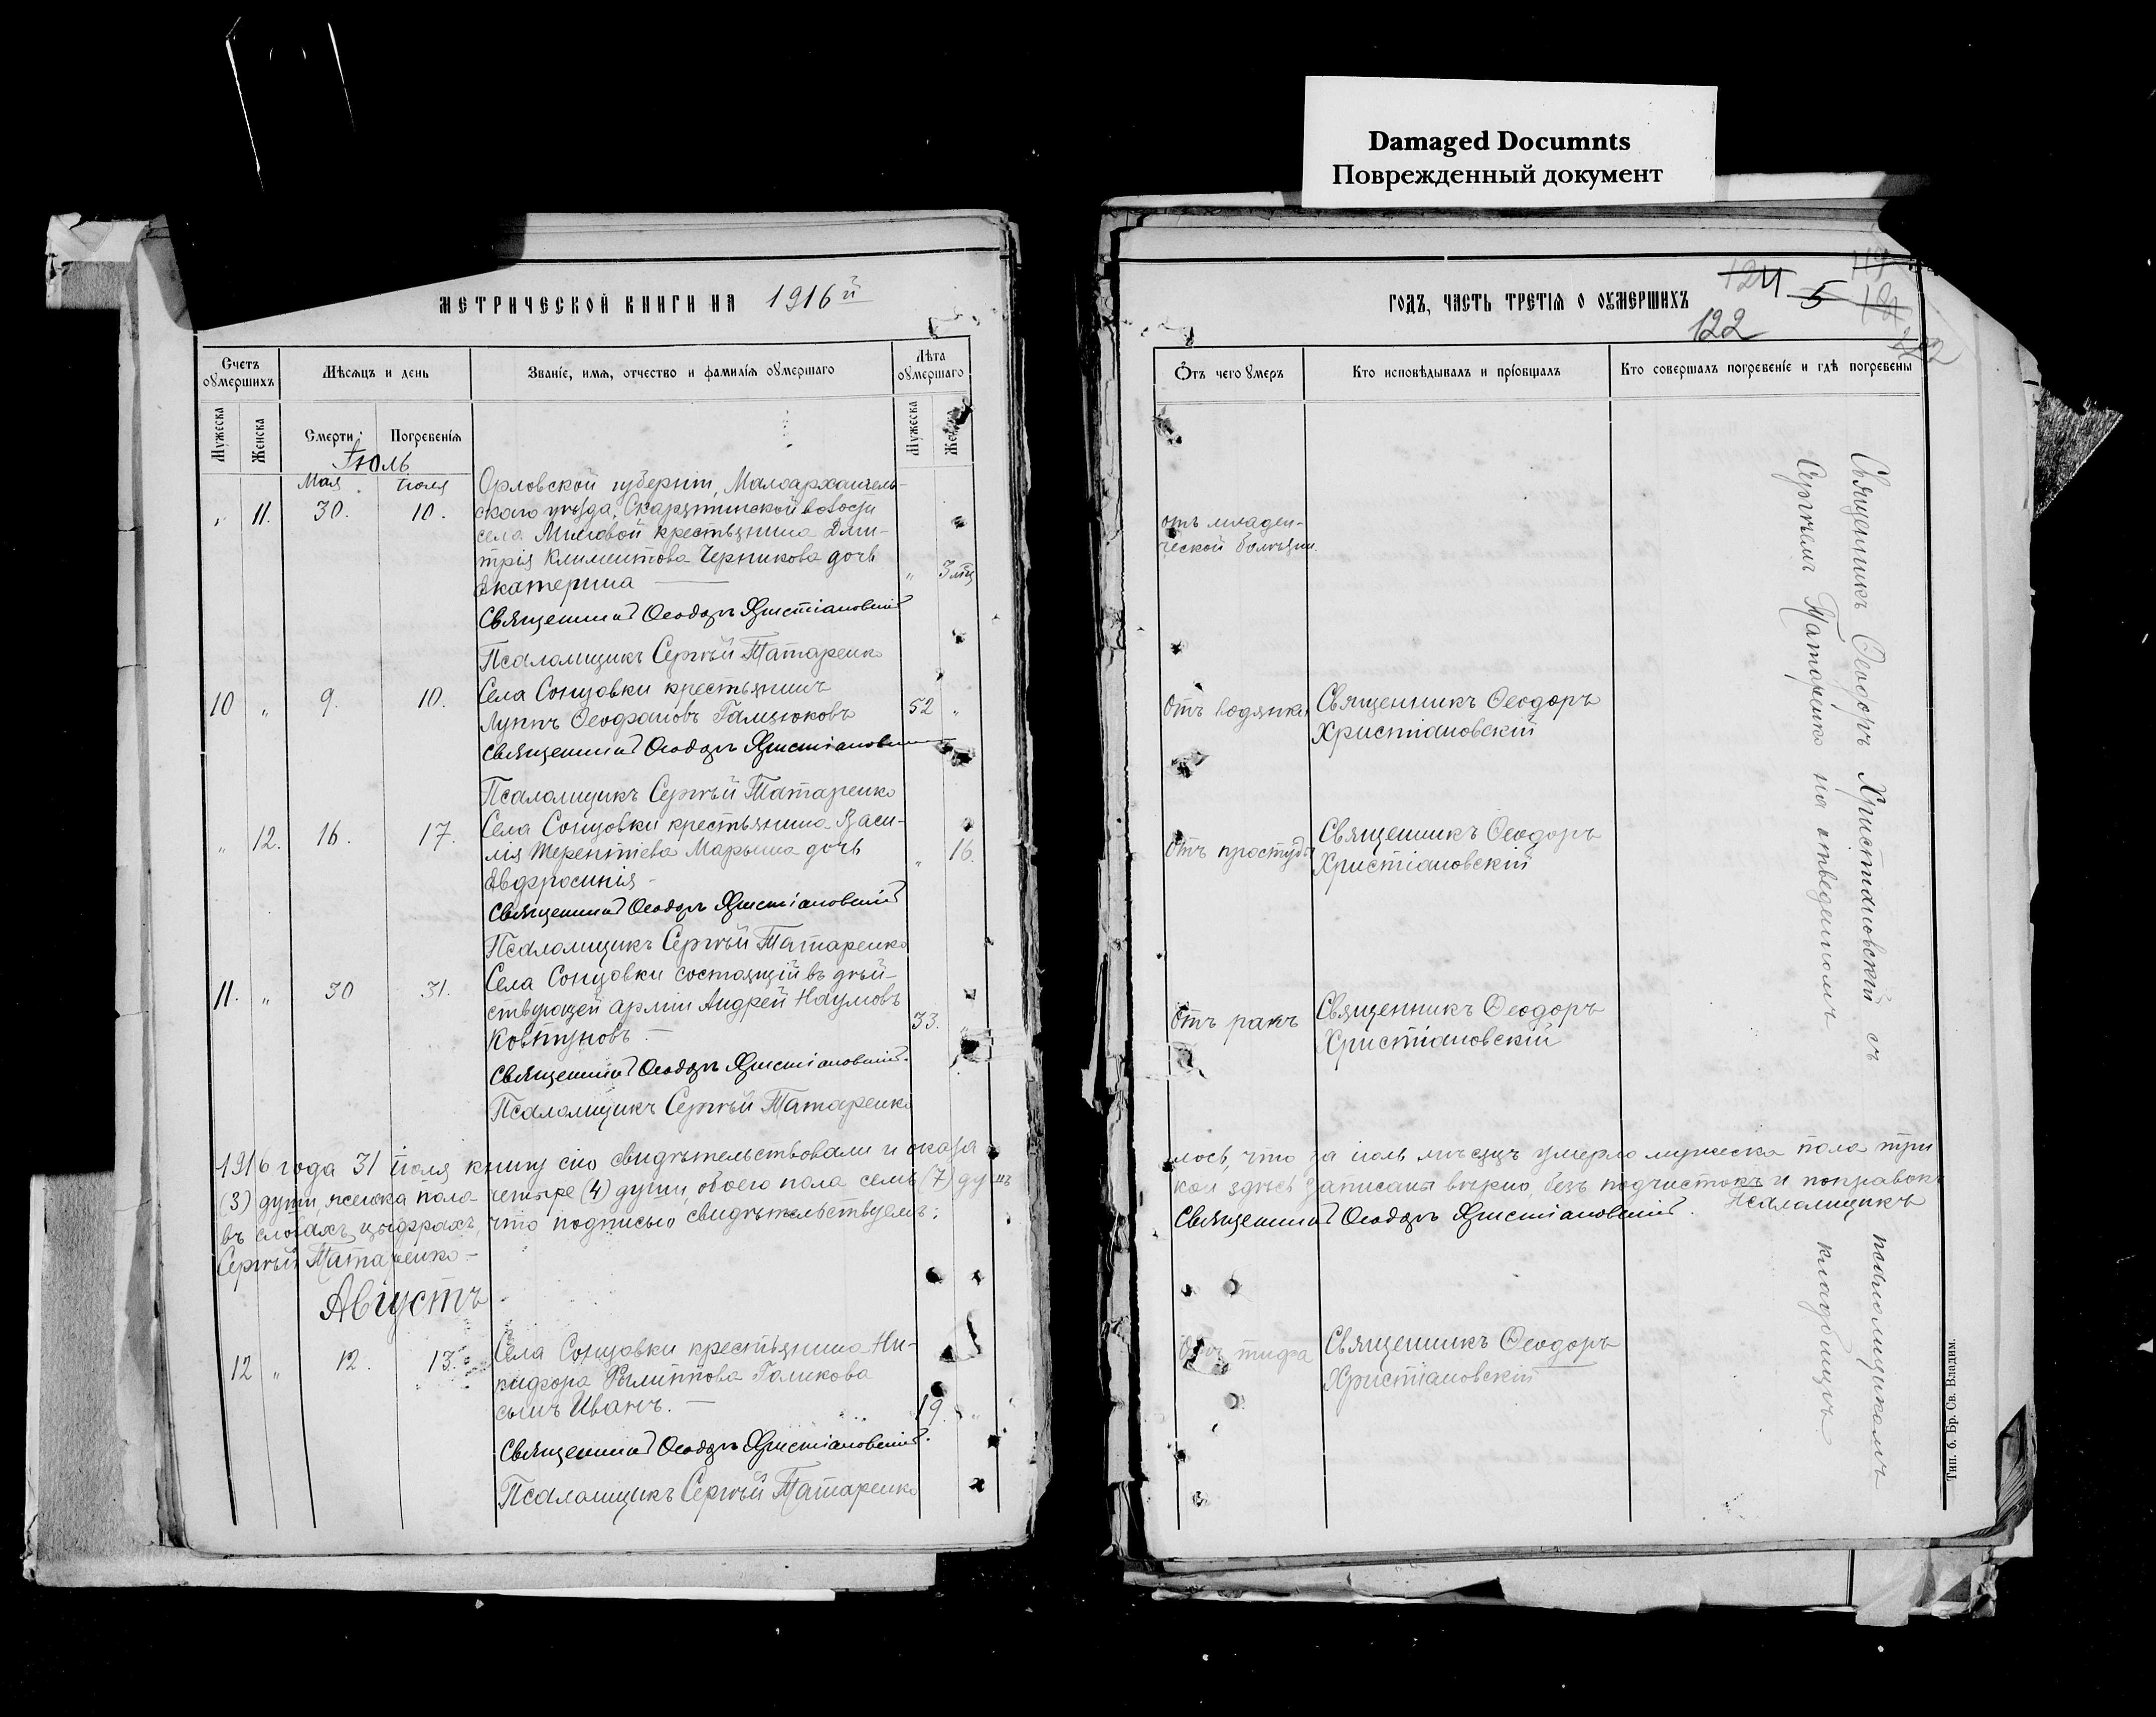 Damaged Documnts
Поврежденный документ
МЕТРИЧЕСКОЙ КНИГИ НА 1916й
Счетъ оумершихъ
Мѣсяцъ и день
Званіе, имя, отчество и фамилія оумершаго
Лѣта оумершаго
Мужеска
Женска
Смерти
Погребенія
Мужеска
Женска
Іюль
Мая Іюля
Орловской губерніи, Малоархангель-
" 11. 30. 10. скаго уѣзда, волости
села крестьянина Дми-
трія Климентова Черникова дочь
Екатерина — " 3 мѣс
Священникъ Ѳеодоръ Христіановскій
Псаломщикъ Сергѣй Татаренко
10 " 9. 10. Села Сонцовки крестьянинъ
Луппъ Ѳеофановъ 52 "
Священникъ Ѳеодоръ Христіановскій
Псаломщикъ Сергѣй Татаренко
" 12. 16. 17. Села Сонцовки крестьянина Васи-
лія Терентіева Марьина дочь " 16.
Евфросинія -
Священникъ Ѳеодоръ Христіановскій
Псаломщикъ Сергѣй Татаренко
11. " 30 31. Села Сонцовки состоящій въ дѣй-
ствующей арміи Андрей Наумовъ
Ковтуновъ — 33. "
Священникъ Ѳеодоръ Христіановскій.
Псаломщикъ Сергѣй Татаренко
1916 года 31 іюля книгу сію свидѣтельствовали и оказа
(3) души, женска пола четыре (4) души, обоего пола семь (7) душъ
въ словахъ, цыфрахъ, что подписью свидѣтельствуемъ:
Сергѣй Татаренко —
Августъ
12 " 12. 13. Села Сонцовки крестьянина Ни-
кифора Филиппова Голикова
сынъ Иванъ. — 19. "
Священникъ Ѳеодоръ Христіановскій.
Псаломщикъ Сергѣй Татаренко
ГОДЪ, ЧАСТЬ ТРЕТІЯ О ОУМЕРШИХЪ
124 5
122
122
Отъ чего умеръ
Кто исповѣдывалъ и пріобщалъ
Кто совершалъ погребеніе и гдѣ погребены
отъ младен-
ческой болѣзни.
Отъ водянки Священникъ Ѳеодоръ
Христіановскій
Отъ простуды Священникъ Ѳеодоръ
Христіановскій
Отъ ракъ Священникъ Ѳеодоръ
Христіановскій
лось, что за іюль мѣсяцъ умерло мужеска пола три
кои здѣсь записаны вѣрно, безъ подчистокъ и поправокъ
Священникъ Ѳеодоръ Христіановскій. Псаломщикъ
Отъ тифа Священникъ Ѳеодоръ
Христіановскій
Священникъ Ѳеодоръ Христіановскій съ псаломщикомъ
Сергѣемъ Татаренко на отведенномъ кладбищѣ
Тип. б. Бр. Св. Владим.